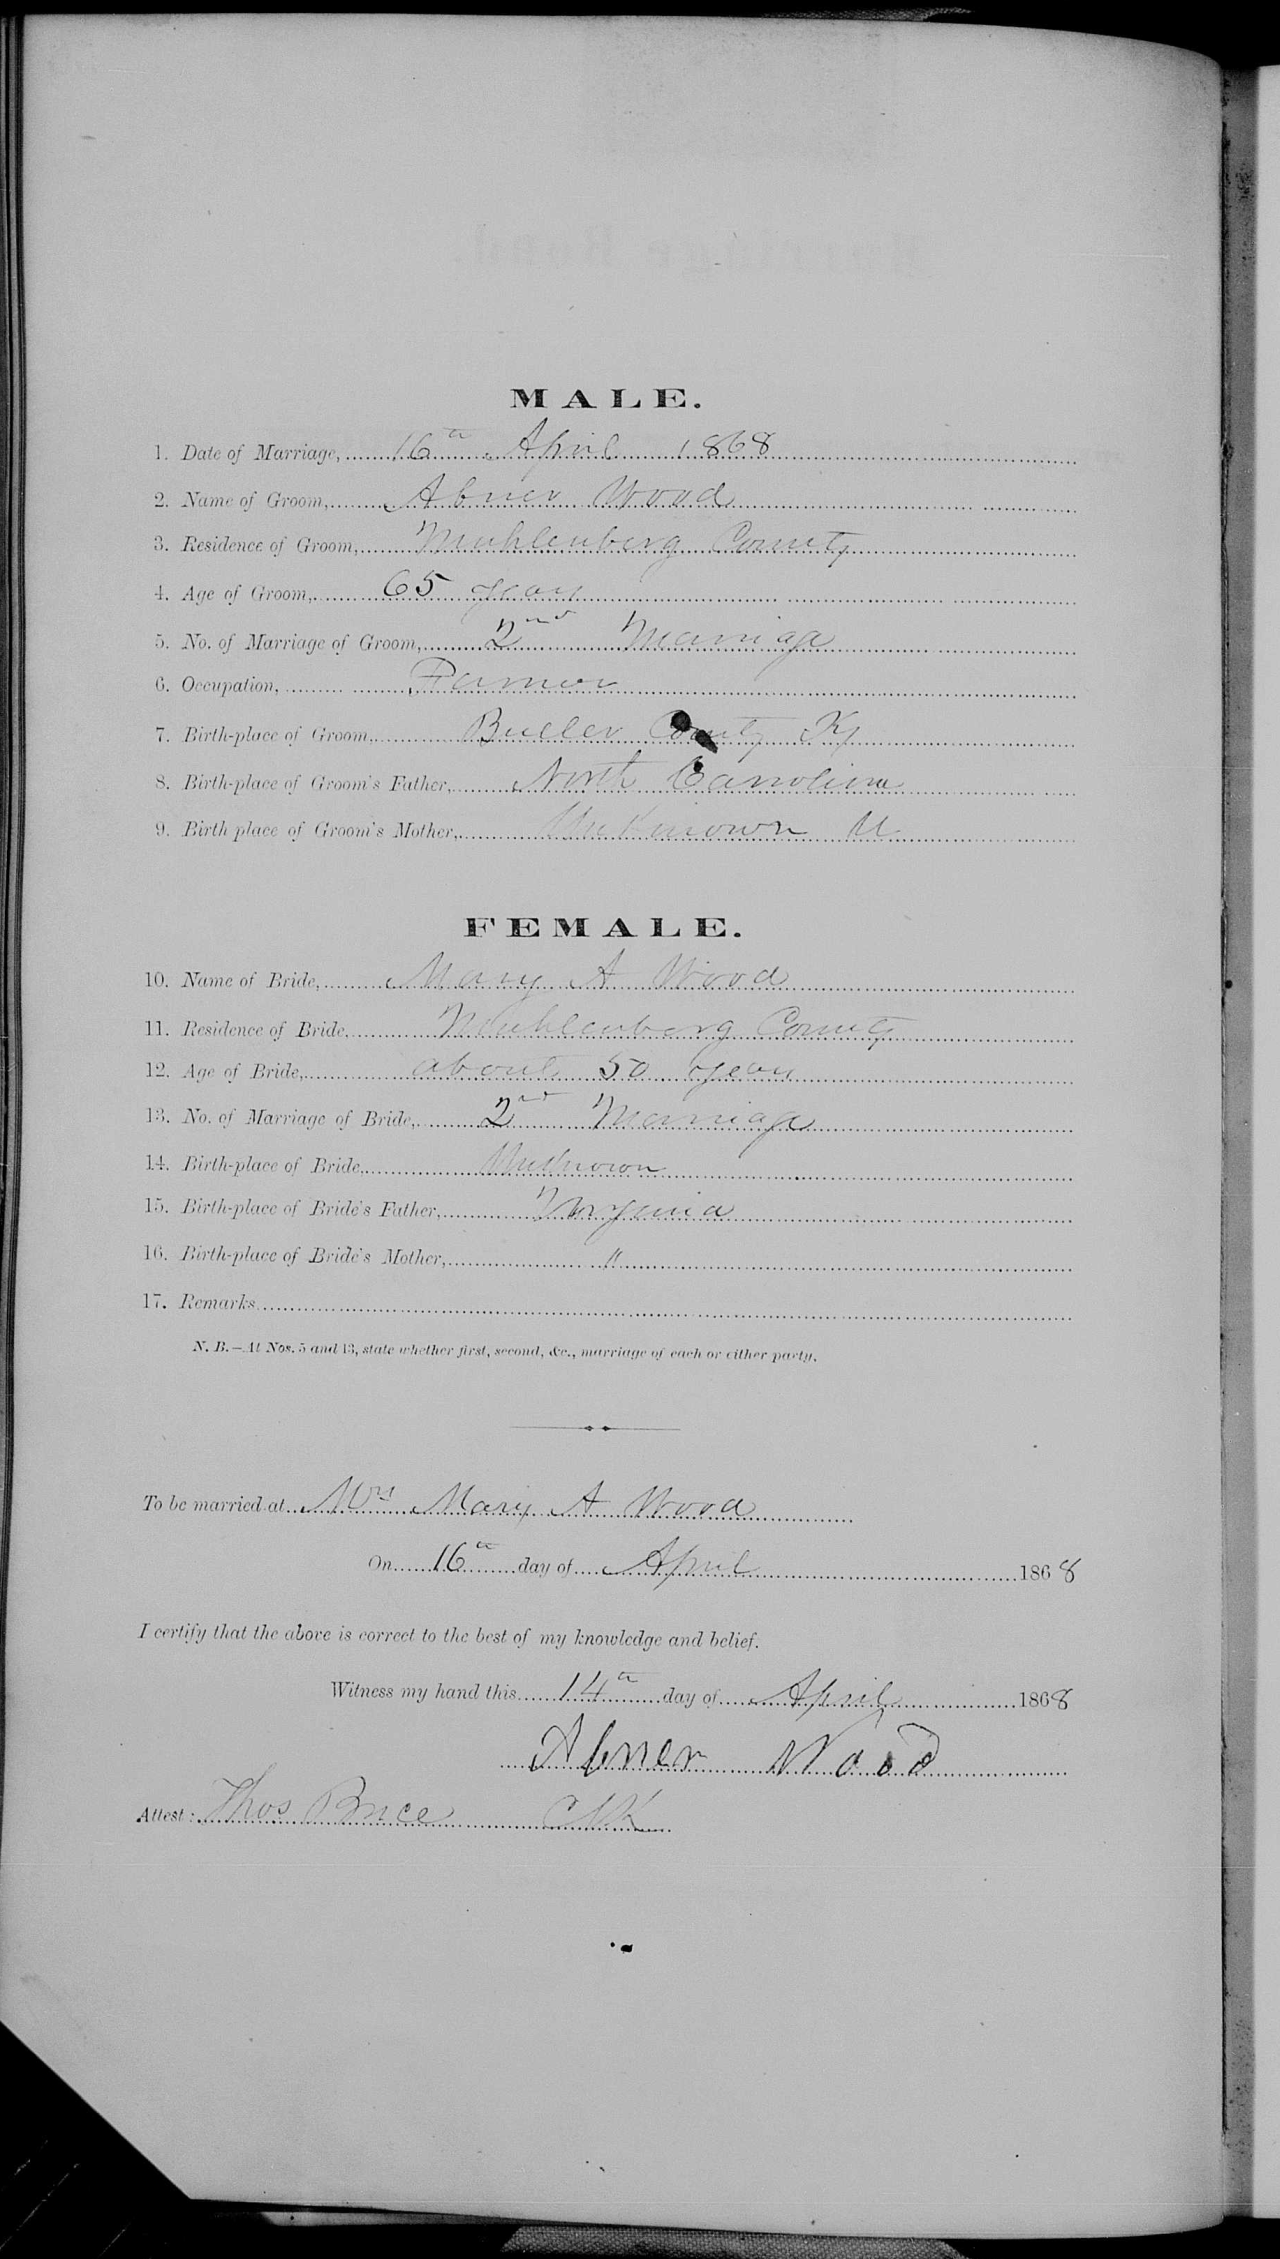 MALE.
1. Date of Marriage, 16th April 1868
2. Name of Groom, Abner Wood
3. Residence of Groom, Muhlenberg County
4. Age of Groom, 65 years
5. No. of Marriage of Groom, 2nd Marriage
6. Occupation, Farmer
7. Birth-place of Groom, Butler County Ky
8. Birth-place of Groom's Father, North Carolina
9. Birth place of Groom's Mother, Unknown
FEMALE.
10. Name of Bride, Mary A Wood
11. Residence of Bride, Muhlenberg County
12. Age of Bride, about 50 years
13. No. of Marriage of Bride, 2nd Marriage
14. Birth-place of Bride, Unknown
15. Birth-place of Bride's Father, Virginia
16. Birth-place of Bride's Mother, "
17. Remarks
N. B.—At Nos. 5 and 13, state whether first, second, &c., marriage of each or either party.
To be married at Mrs Mary A Wood
On 16th day of April 1868
I certify that the above is correct to the best of my knowledge and belief.
Witness my hand this 14th day of April 1868
Abner Wood
Attest: Thos Bruce Clk